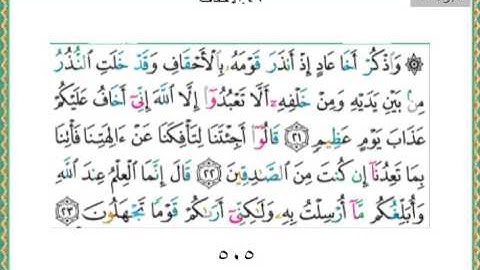 ۞ وَاذْكُرْ أَخَا عَادٍ إِذْ أَنذَرَ قَوْمَهُ بِالْأَحْقَافِ وَقَدْ خَلَتِ النُّذُرُ
مِن بَيْنِ يَدَيْهِ وَمِنْ خَلْفِهِ أَلَّا تَعْبُدُوا إِلَّا اللَّهَ إِنِّي أَخَافُ عَلَيْكُمْ
عَذَابَ يَوْمٍ عَظِيمٍ ٢١ قَالُوا أَجِئْتَنَا لِتَأْفِكَنَا عَنْ آلِهَتِنَا فَأْتِنَا
بِمَا تَعِدُنَا إِن كُنتَ مِنَ الصَّادِقِينَ ٢٢ قَالَ إِنَّمَا الْعِلْمُ عِندَ اللَّهِ
وَأُبَلِّغُكُم مَّا أُرْسِلْتُ بِهِ وَلَٰكِنِّي أَرَاكُمْ قَوْمًا تَجْهَلُونَ ٢٣
٥٠٥